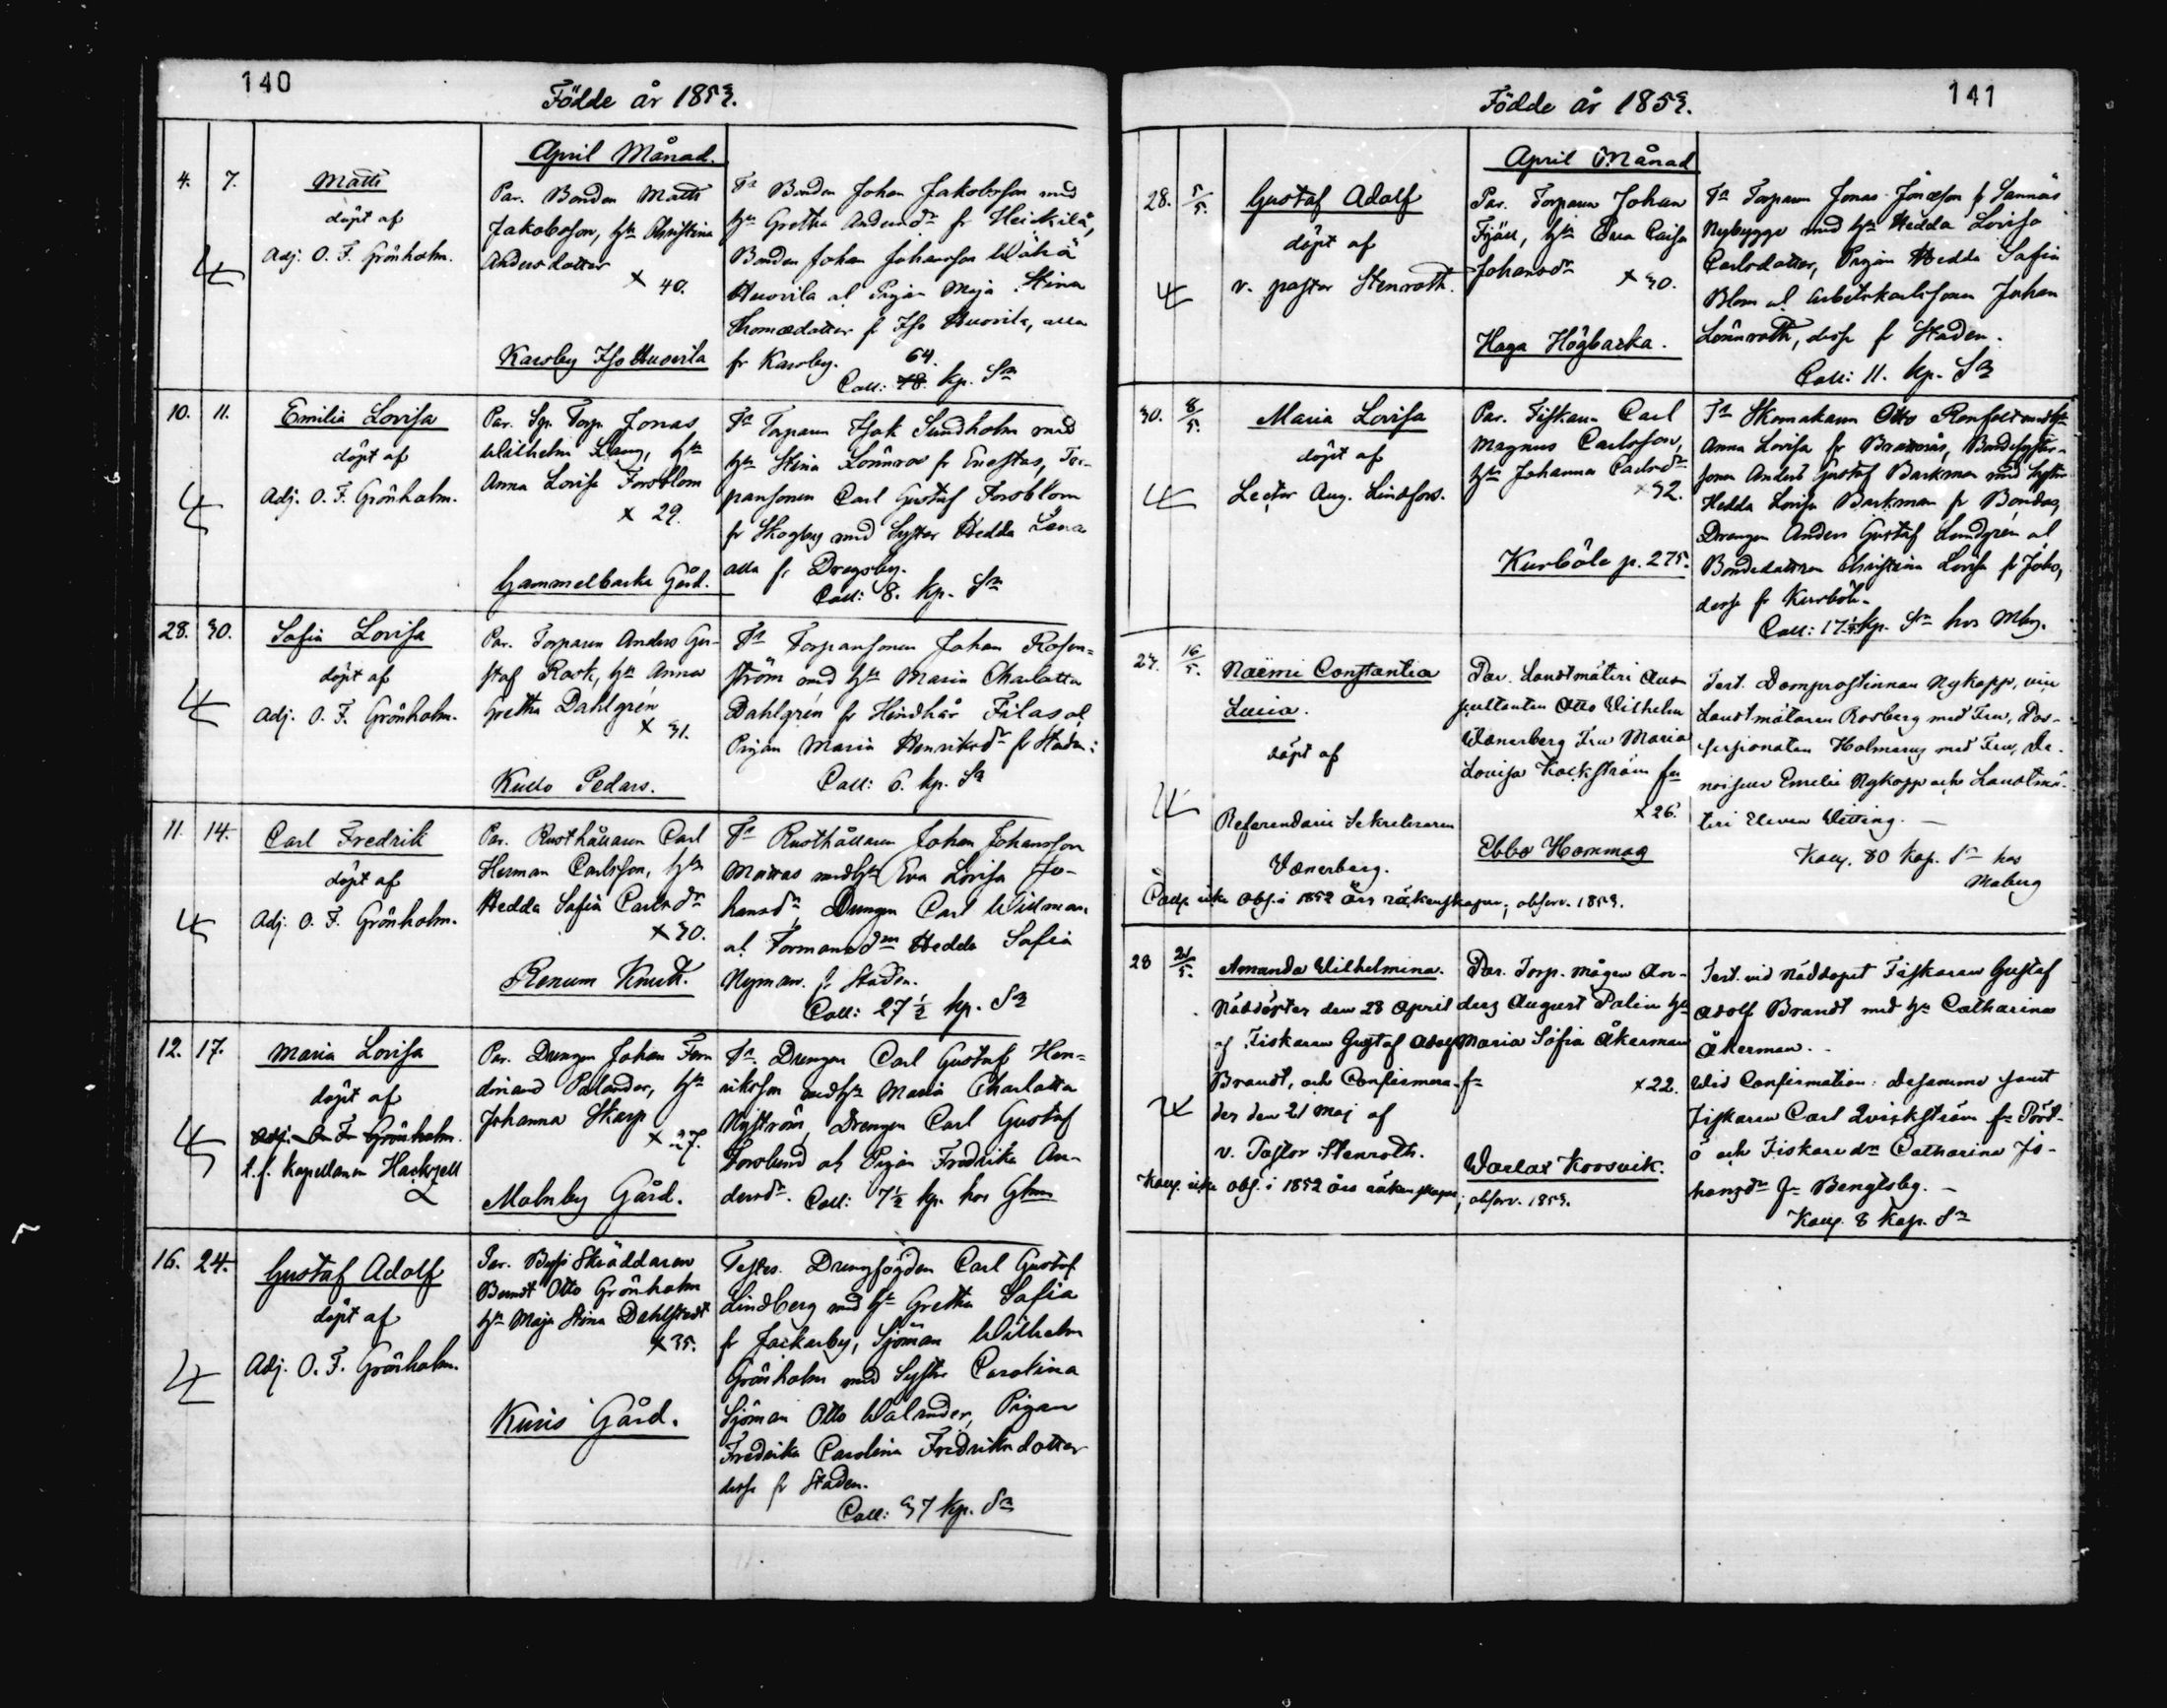 140
Födde år 1853.
April Månad.
4. 7.
Matts
döpt af
Adj. O. F. Grönholm.
Par. Bonden Matts
Jakobsson, h:n Christina
Andersdotter
x 40.
Karsby Iso Huovila
T:s Bonden Johan Jakobsson med
h:n Gretha Andersd:r fr Heickilä,
Bonden Johan Johansson Wähä
Huovila al Pigan Maja Stina
Thomædotter f Iso Huovila, alla
fr Karsby. 64.
Coll: 78. kp. S:m
10. 11.
Emilia Lovisa
döpt af
Adj. O. F. Grönholm.
Par. Sp. Torp. Jonas
Wilhelm Lång, h:n
Anna Lovisa Forsblom
x 29.
Gammelbacka Gård.
T:s Torparen Isak Sundholm med
h:n Stina Lönnros fr Enestas, Tor-
parsonen Carl Gustaf Forsblom
fr Skogby med Syster Hedda Lena
alla fr Dragsby.
Coll: 8. kp. S:m
28. 30.
Sofia Lovisa
döpt af
Adj. O. F. Grönholm.
Par. Torparen Anders Gu-
staf Rask, h:n Anna
Gretha Dahlgrén
x 31.
Kullo Pedars.
T:s Torparsonen Johan Rosen=
ström med h:n Maria Charlotta
Dahlgrén fr Hindhår Filas al
Pigan Maria Henriksd:r fr Staden:
Coll: 6. kp. S:m
11. 14.
Carl Fredrik
döpt af
Adj. O. F. Grönholm.
Par. Rusthållaren Carl
Herman Carlsson, h:n
Hedda Sofia Carlsd:r
x 30.
Renum Knuts.
T:s Rusthållaren Johan Johansson
Mattas med h:n Eva Lovisa Jo-
hansd:r, Drengen Carl Widman
al Formansd:n Hedda Sofia
Nyman. f Staden.
Coll: 27½ kp. S:m
12. 17.
Maria Lovisa
döpt af
Adj. O. F. Grönholm.
t. f. Kapellanen Hackzell
Par. Drengen Johan Fer
dinand Palander, h:n
Johanna Skarp
x 27.
Malmby Gård.
T:s Drengen Carl Gustaf Hen-
riksson med h:n Maria Charlotta
Nyström, Drengen Carl Gustaf
Forslund och Pigan Fredrika An-
dersd:r. Coll: 7½ kp. hos Ghm
16. 24.
Gustaf Adolf
döpt af
Adj. O. F. Grönholm.
Par. Bysskräddaren
Berndt Otto Grönholm
h:n Maja Stina Dahlstedt
x 35.
Kiris Gård.
Testes. Drengfogden Carl Gustaf
Lindberg med h:n Gretha Sofia
fr Jackarby, Sjöman Wilhelm
Grönholm med Syster Carolina
Sjöman Otto Walander, Pigan
Fredrika Carolina Fredriksdotter
desse fr Staden.
Coll: 37 kp. S:m
141
Födde år 1853.
April Månad
28. 5/5.
Gustaf Adolf
döpt af
v. pastor Stenroth.
Par. Torparen Johan
Fjäll, h:n Eva Caisa
Johansd:r
x 30.
Haga Högbacka.
T:s Torparen Jonas Jonasson f Sannäs
Nybygge med h:n Hedda Lovisa
Carlsdotter, Pigan Hedda Sofia
Blom al Arbetskarlssonen Johan
Lönnroth, desse fr Staden.
Coll: 11. kp. S:m
30. 8/5.
Maria Lovisa
döpt af
Lector Aug. Lindfors.
Par. Fiskaren Carl
Magnus Carlsson,
h:n Johanna Carlsd:r
x 32.
Kurböle p. 275.
T:s Skomakaren Otto Renfelt med h:n
Anna Lovisa fr Brattnäs, Bondesyster-
sonen Anders Gustaf Backman med Syster
Hedda Lovisa Backman fr Bondas,
Drengen Anders Gustaf Lundgrén al
Bondedottren Christina Lovisa fr Jobo,
desse fr Kurböle.
Coll: 17½ kp. S:m hos Mbg.
27. 16/5.
Naëmi Constantia
Lucia.
döpt af
Referendarie Sekreteraren
Vænerberg.
Par. Landtmäteri Aus-
kultanten Otto Wilhelm
Wænerberg Fru Maria
Lovisa Kockström fr
x 26.
Ebbo Hommag
Test. Domprostinnan Nykopp, vice
Landtmätaren Rosberg med Fru, Pos-
sessionaten Holmberg med Fru, De-
moiselle Emelie Nykopp och Landtmä-
teri Eleven Witting. -
Kollg. 80 kop. S:m hos
Moberg
Coll. icke obs. i 1852 års räkenskaper; observ. 1853.
28 21/5.
Amanda Wilhelmina.
Nöddöpter den 28 April
af Fiskaren Gustaf Adolf
Brandt, och Confirmera-
des den 21 Maj af
v. Pastor Stenroth.
Par. Torp. mågen An-
ders August Palin h:n
Maria Sofia Åkerman
fr x 22.
Warlax Koosvik.
Test. vid Nöddopet Fiskaren Gustaf
Adolf Brandt med h:n Catharina
Åkerman. -
Wid Confirmation: Desamme samt
Fiskaren Carl Qvickström fr Pört-
ö och Fiskare d:n Catharina Jo-
hansd:r fr Bengtsby. -
Koll. 8 Kop. S:m
Koll. icke obs. i 1852 års räkenskaper; observ. 1853.